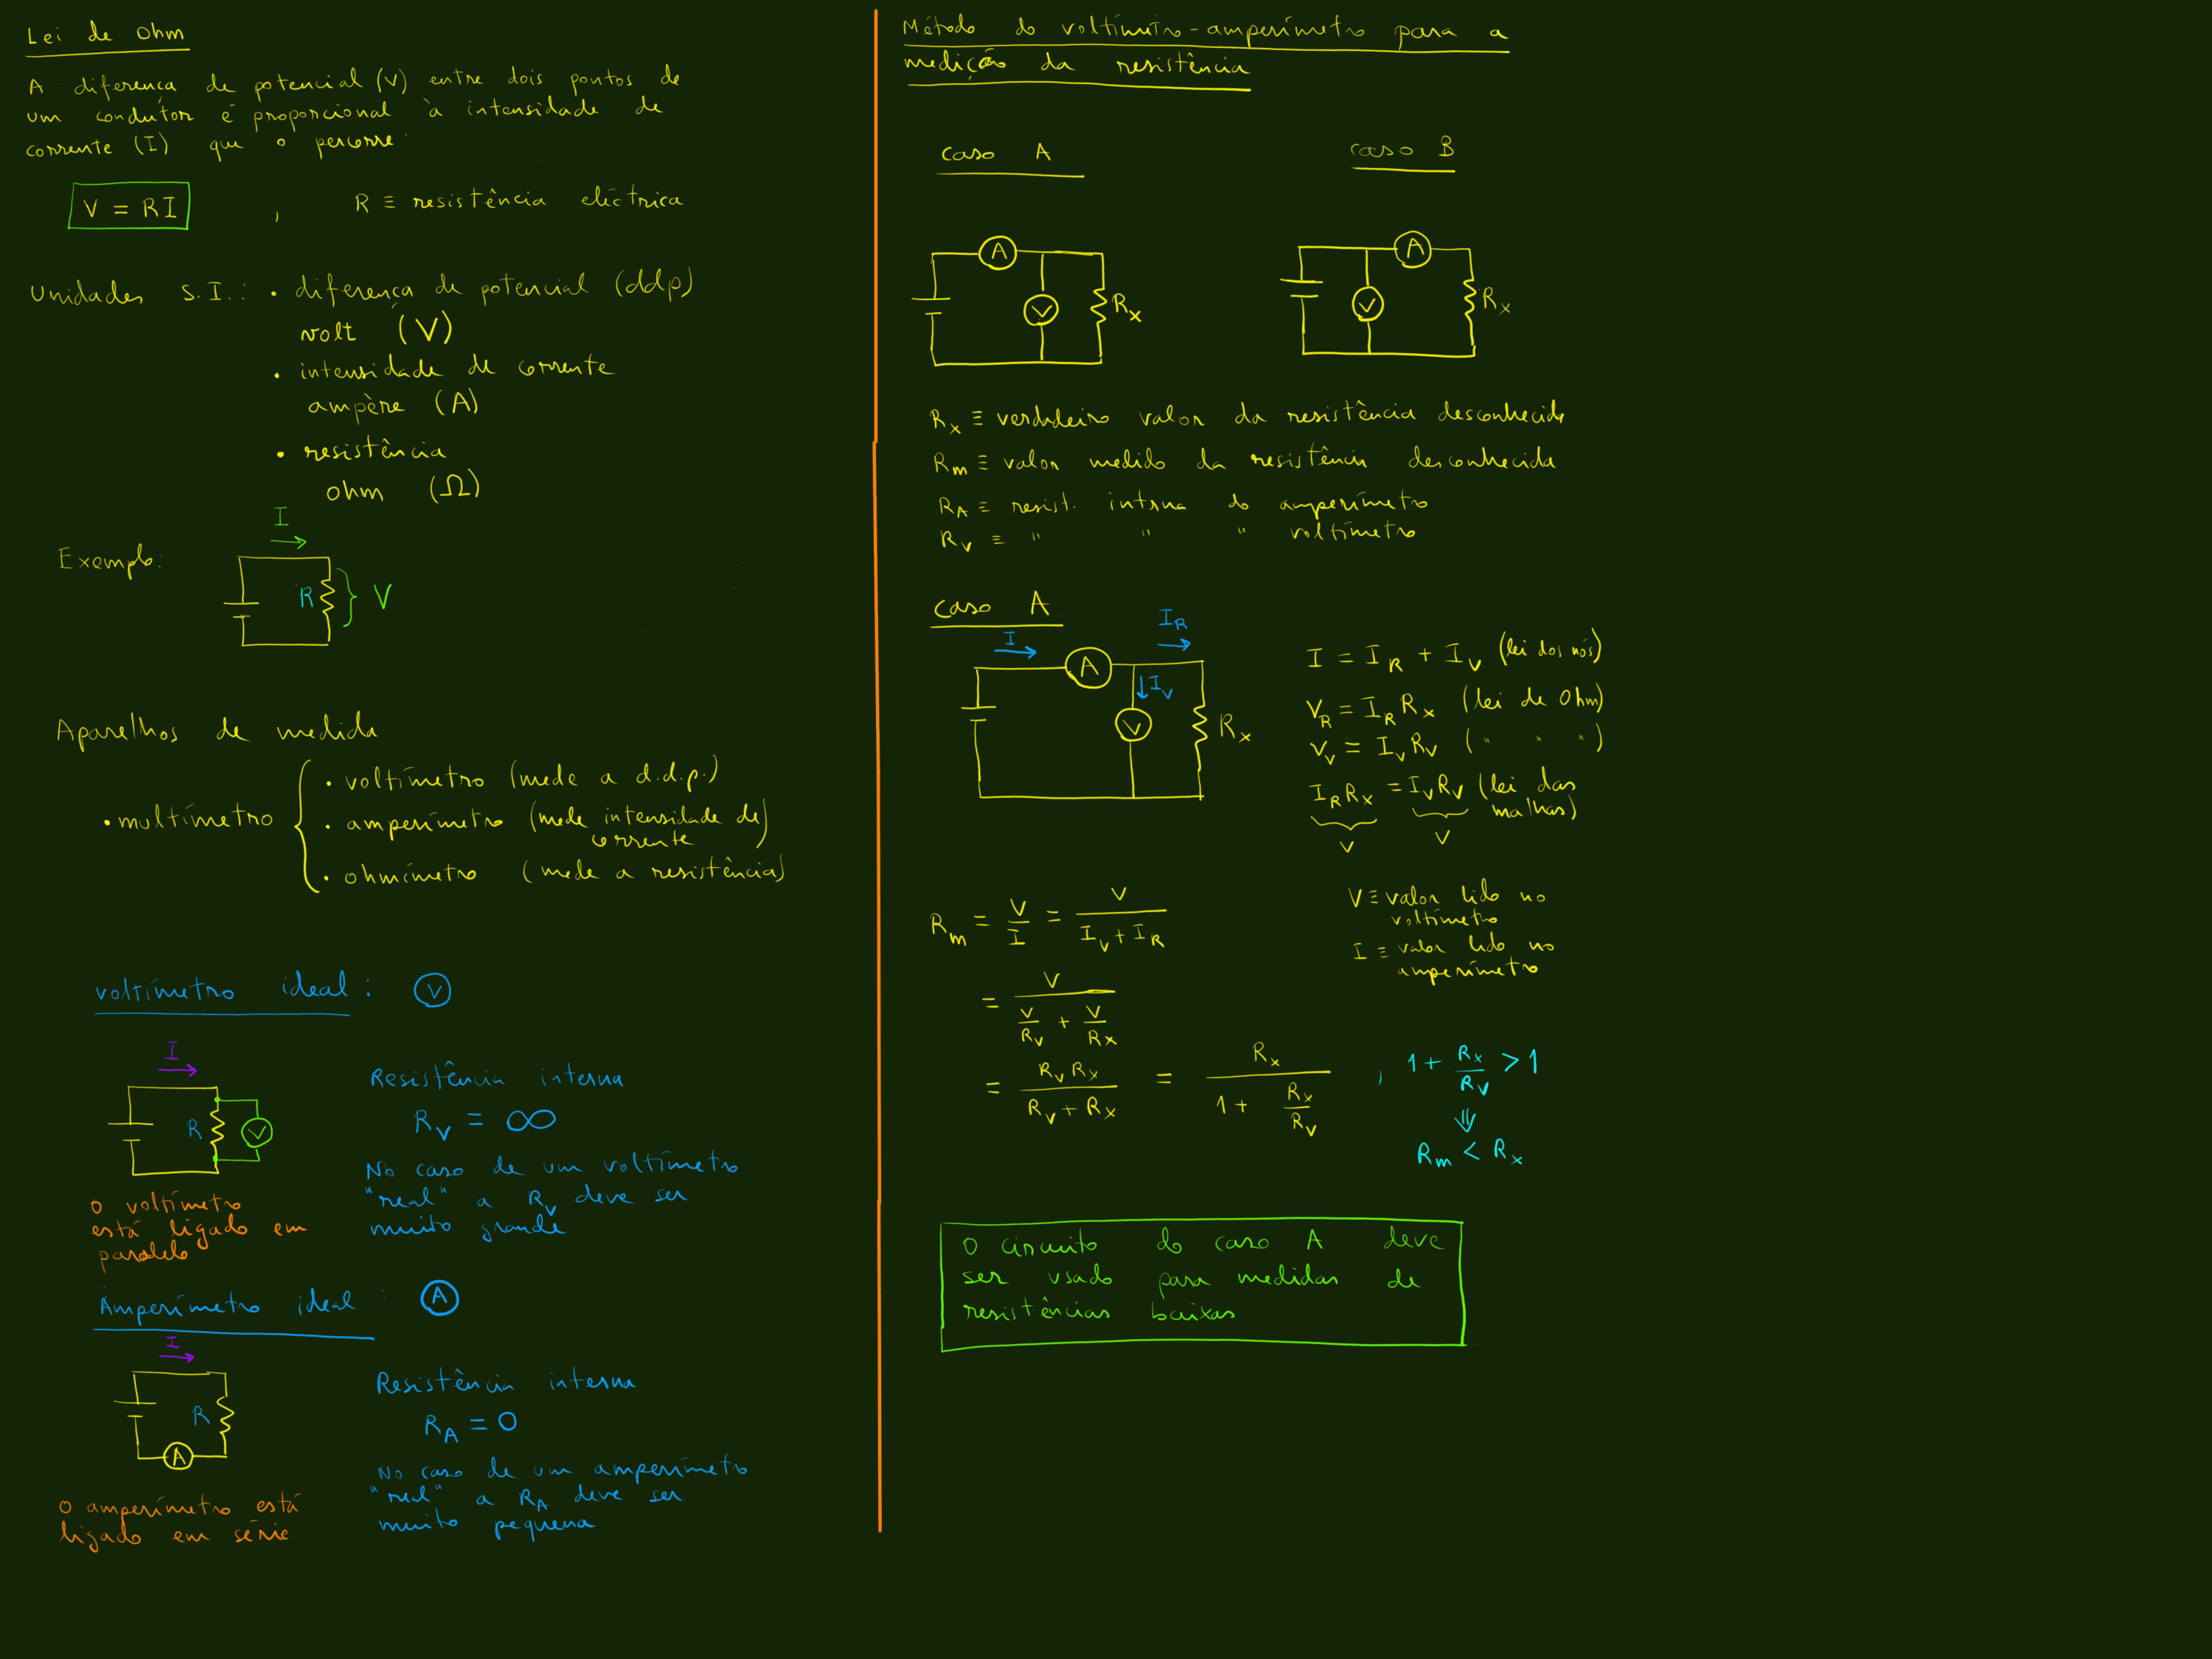 Lei de Ohm
A diferença de potencial (V) entre dois pontos de
um condutor é proporcional à intensidade de
corrente (I) que o percorre:
V = RI , R ≡ resistência eléctrica
Unidades S.I.: • diferença de potencial (ddp)
volt (V)
• intensidade de corrente
ampère (A)
• resistência
ohm (Ω)
Exemplo:
I
R } V
Aparelhos de medida
• multímetro
• voltímetro (mede a d.d.p.)
• amperímetro (mede intensidade de
corrente)
• ohmímetro (mede a resistência)
voltímetro ideal : V
I
R V
Resistência interna
R_V = ∞
No caso de um voltímetro
"real" a R_V deve ser
muito grande
O voltímetro
está ligado em
paralelo
Amperímetro ideal : A
I
R
A
Resistência interna
R_A = 0
No caso de um amperímetro
"real" a R_A deve ser
muito pequena
O amperímetro está
ligado em série
Método do voltímetro-amperímetro para a
medição da resistência
caso A
A
V R_x
caso B
A
V R_x
R_x ≡ verdadeiro valor da resistência desconhecida
R_m ≡ valor medido da resistência desconhecida
R_A ≡ resist. interna do amperímetro
R_V ≡ " " " voltímetro
caso A
I I_R
A I_V
V R_x
I = I_R + I_V (lei dos nós)
V_R = I_R R_x (lei de Ohm)
V_V = I_V R_V ( " " " )
I_R R_x = I_V R_V (lei das
malhas)
V V
V ≡ valor lido no
voltímetro
I ≡ valor lido no
amperímetro
R_m = V/I = V/(I_V + I_R)
= V/(V/R_V + V/R_x)
= R_V R_x/(R_V + R_x) = R_x/(1 + R_x/R_V) , 1 + R_x/R_V > 1
⇓
R_m < R_x
O circuito do caso A deve
ser usado para medidas de
resistências baixas